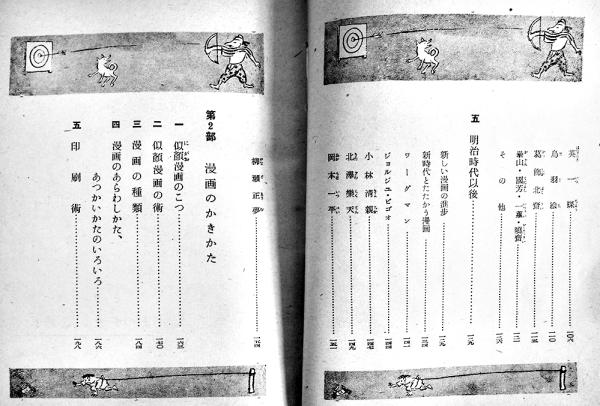 英一蝶 一〇六
鳥羽絵 一一〇
葛飾北齋 一一五
崋山・國芳・一蕙・曉齋
その他
五 明治時代以後 一二九
新しい漫画の進步 一二九
新時代とたたかう漫画
ワーグマン 一四一
ジョルジュ・ビゴオ
小林清親 一四七
北澤樂天 一四九
岡本一平 一五一
柳瀨正夢 一五四
第2部 漫画のかきかた
一 似顔漫画のこつ 一六三
二 似顔漫画の術 一七〇
三 漫画の種類 一八四
四 漫画のあらわしかた、
あつかいかたのいろいろ 一八六
五 印刷術 一九八